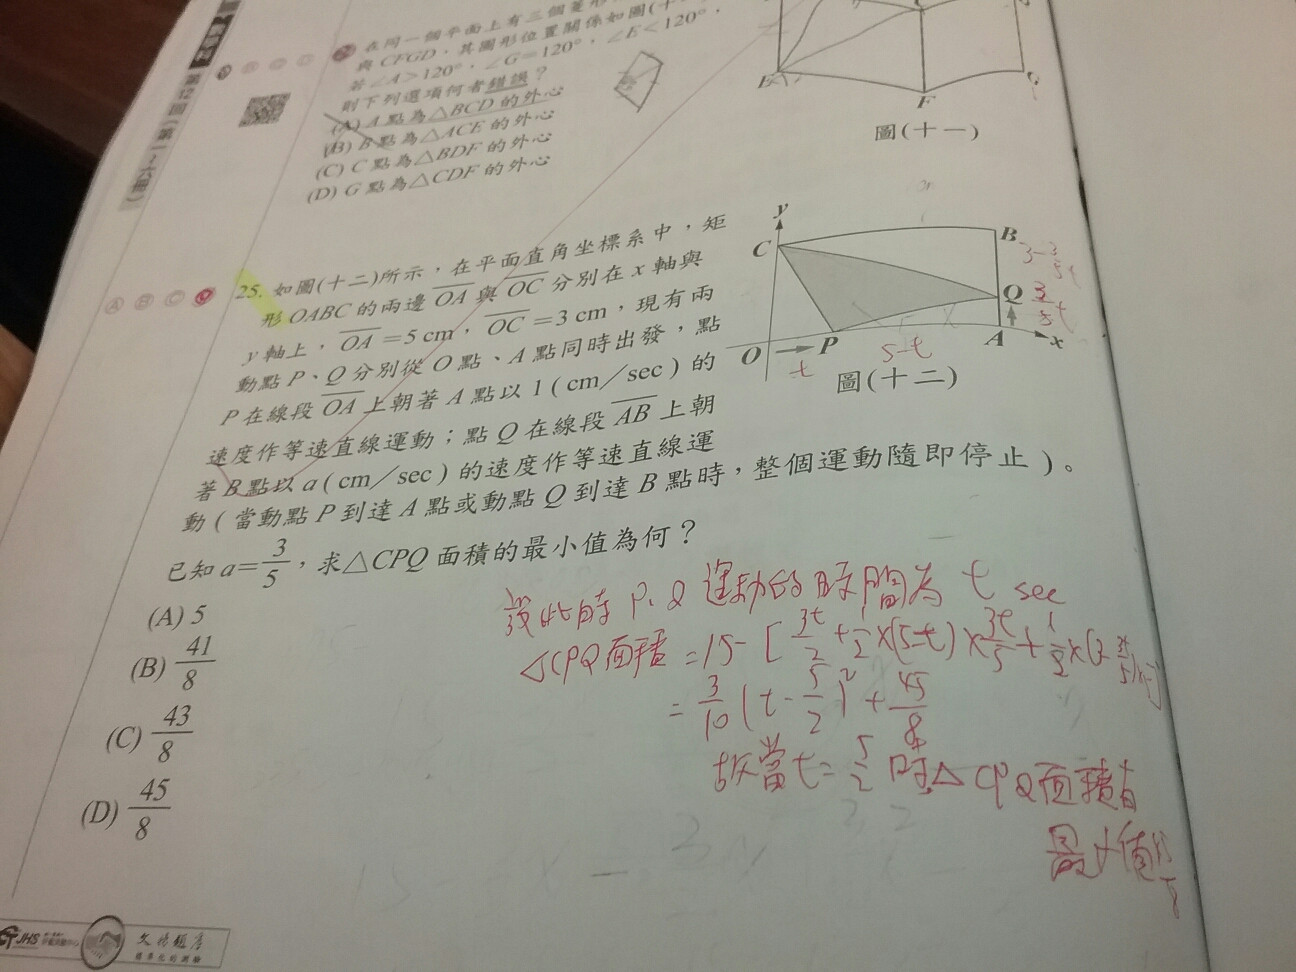 第12回(第一~六冊)
在同一個平面上有三個菱形
與CFGD,其圖形位置關係如圖(十
若∠A>120°,∠G=120°,∠E<120°,
則下列選項何者錯誤?
(A) A點為△BCD的外心
(B) B點為△ACE的外心
(C) C點為△BDF的外心
(D) G點為△CDF的外心
E
F
G
圖(十一)
Ⓐ Ⓑ Ⓒ Ⓓ
25. 如圖(十二)所示,在平面直角坐標系中,矩
形OABC的兩邊OA與OC分別在x軸與
y軸上,OA=5 cm,OC=3 cm,現有兩
動點P、Q分別從O點、A點同時出發,點
P在線段OA上朝著A點以1(cm/sec)的
速度作等速直線運動;點Q在線段AB上朝
著B點以a(cm/sec)的速度作等速直線運
動(當動點P到達A點或動點Q到達B點時,整個運動隨即停止)。
已知a=3/5,求△CPQ面積的最小值為何?
(A) 5
(B) 41/8
(C) 43/8
(D) 45/8
y
C
B
3-3/5t
Q
3/5t
O
P
A
x
t
5-t
圖(十二)
設此時P、Q運動的時間為t sec
△CPQ面積=15-[3t/2+1/2×(5-t)×3t/5+1/2×(3-3t/5)×5]
=3/10(t-5/2)²+45/8
故當t=5/2時,△CPQ面積有
最小值45/8
JHS